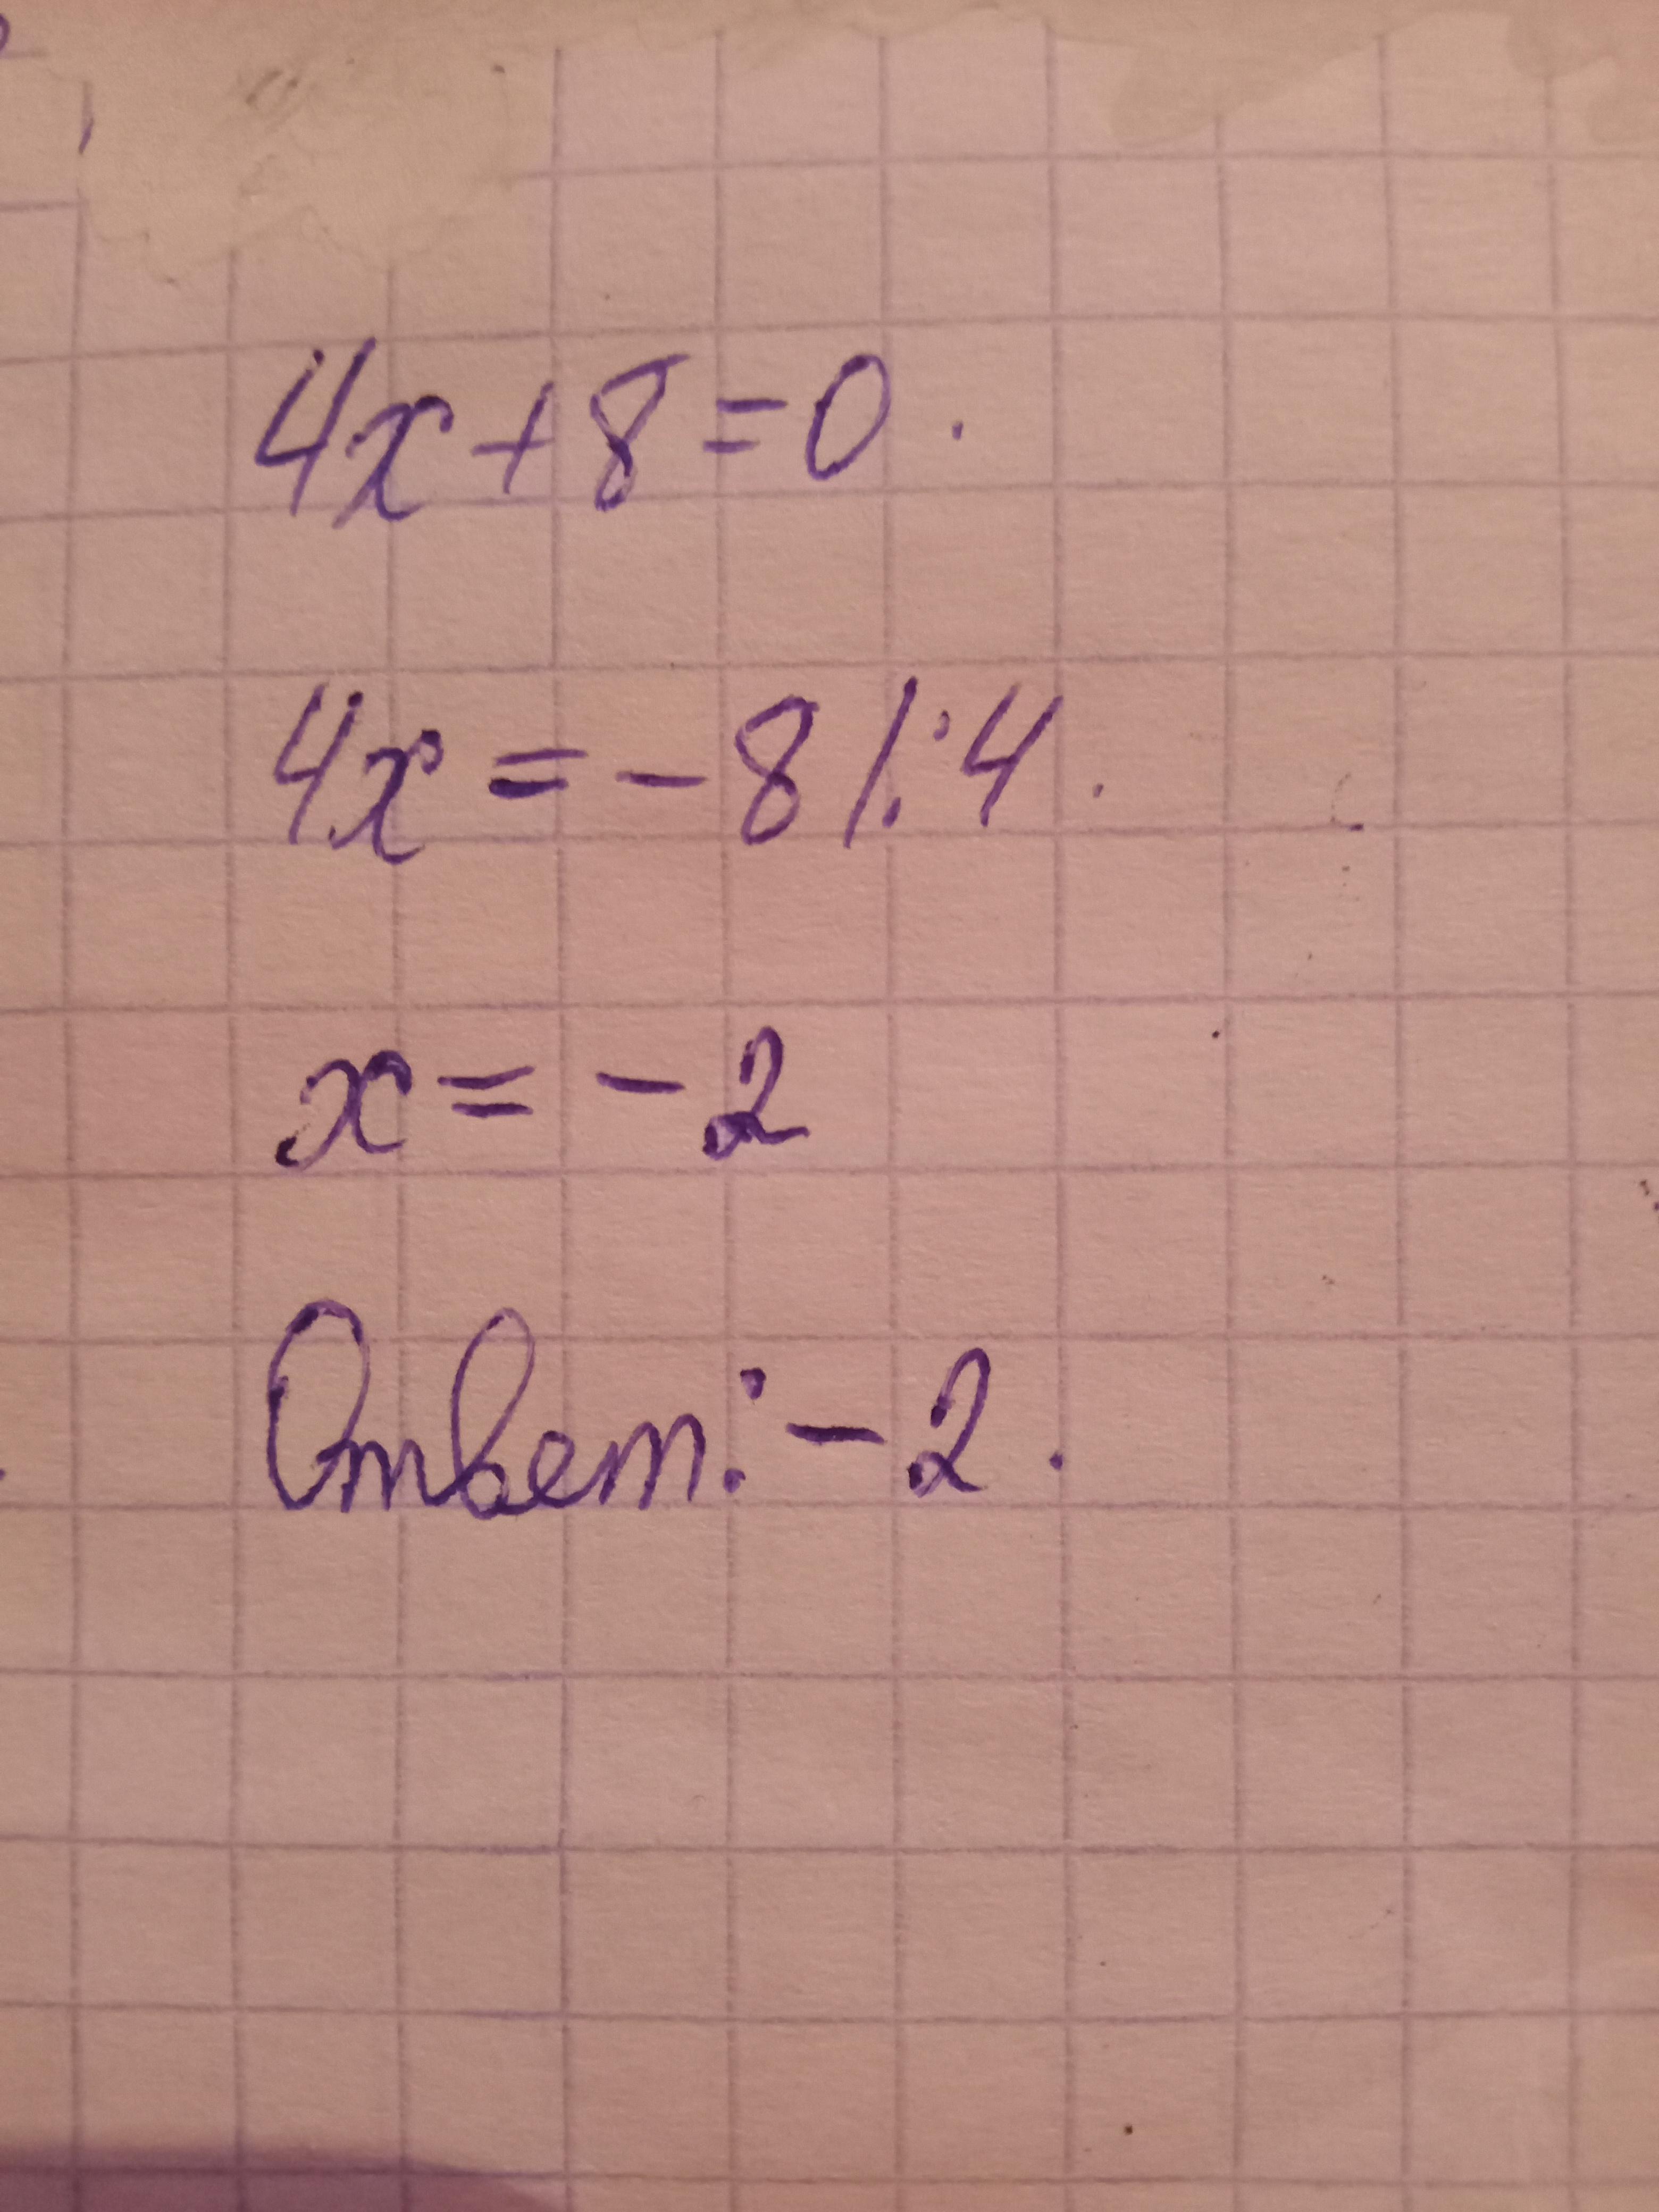 4x+8=0.
4x=-8/:4.
x=-2
Ответ:-2.